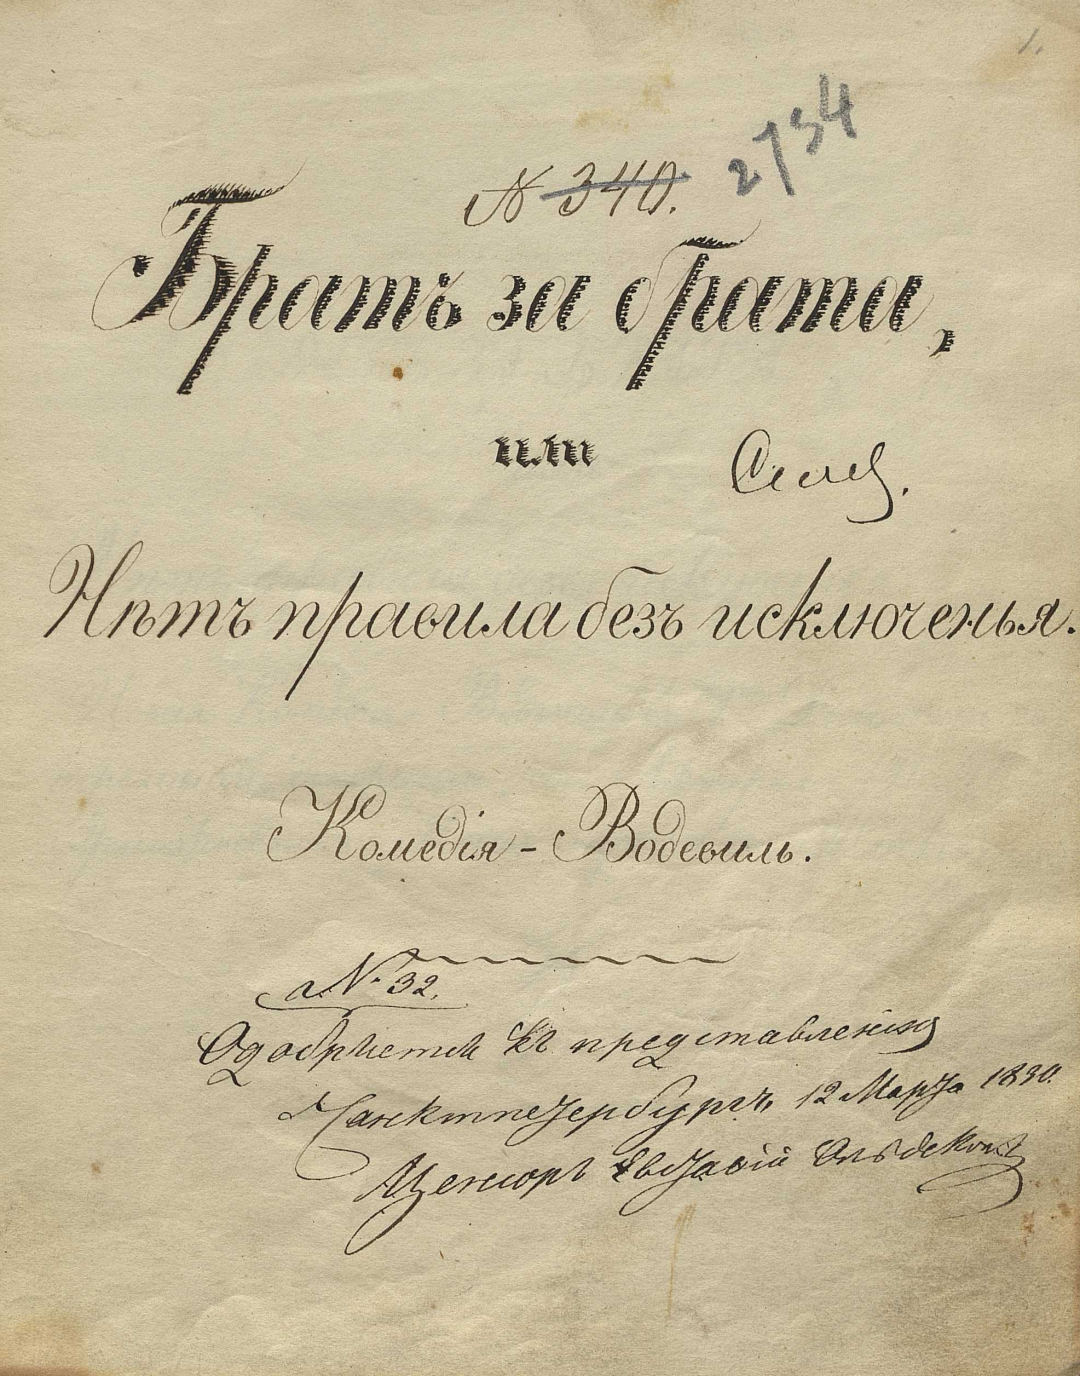 1.
2734
N 340.
Братъ за брата,
или
Нѣтъ правила безъ исключенья.
Комедія - Водевиль.
N. 32.
Одобряется къ представленію
Санктпетербургъ, 12 Марта 1830.
Ценсоръ Евстафій Ольдекопъ